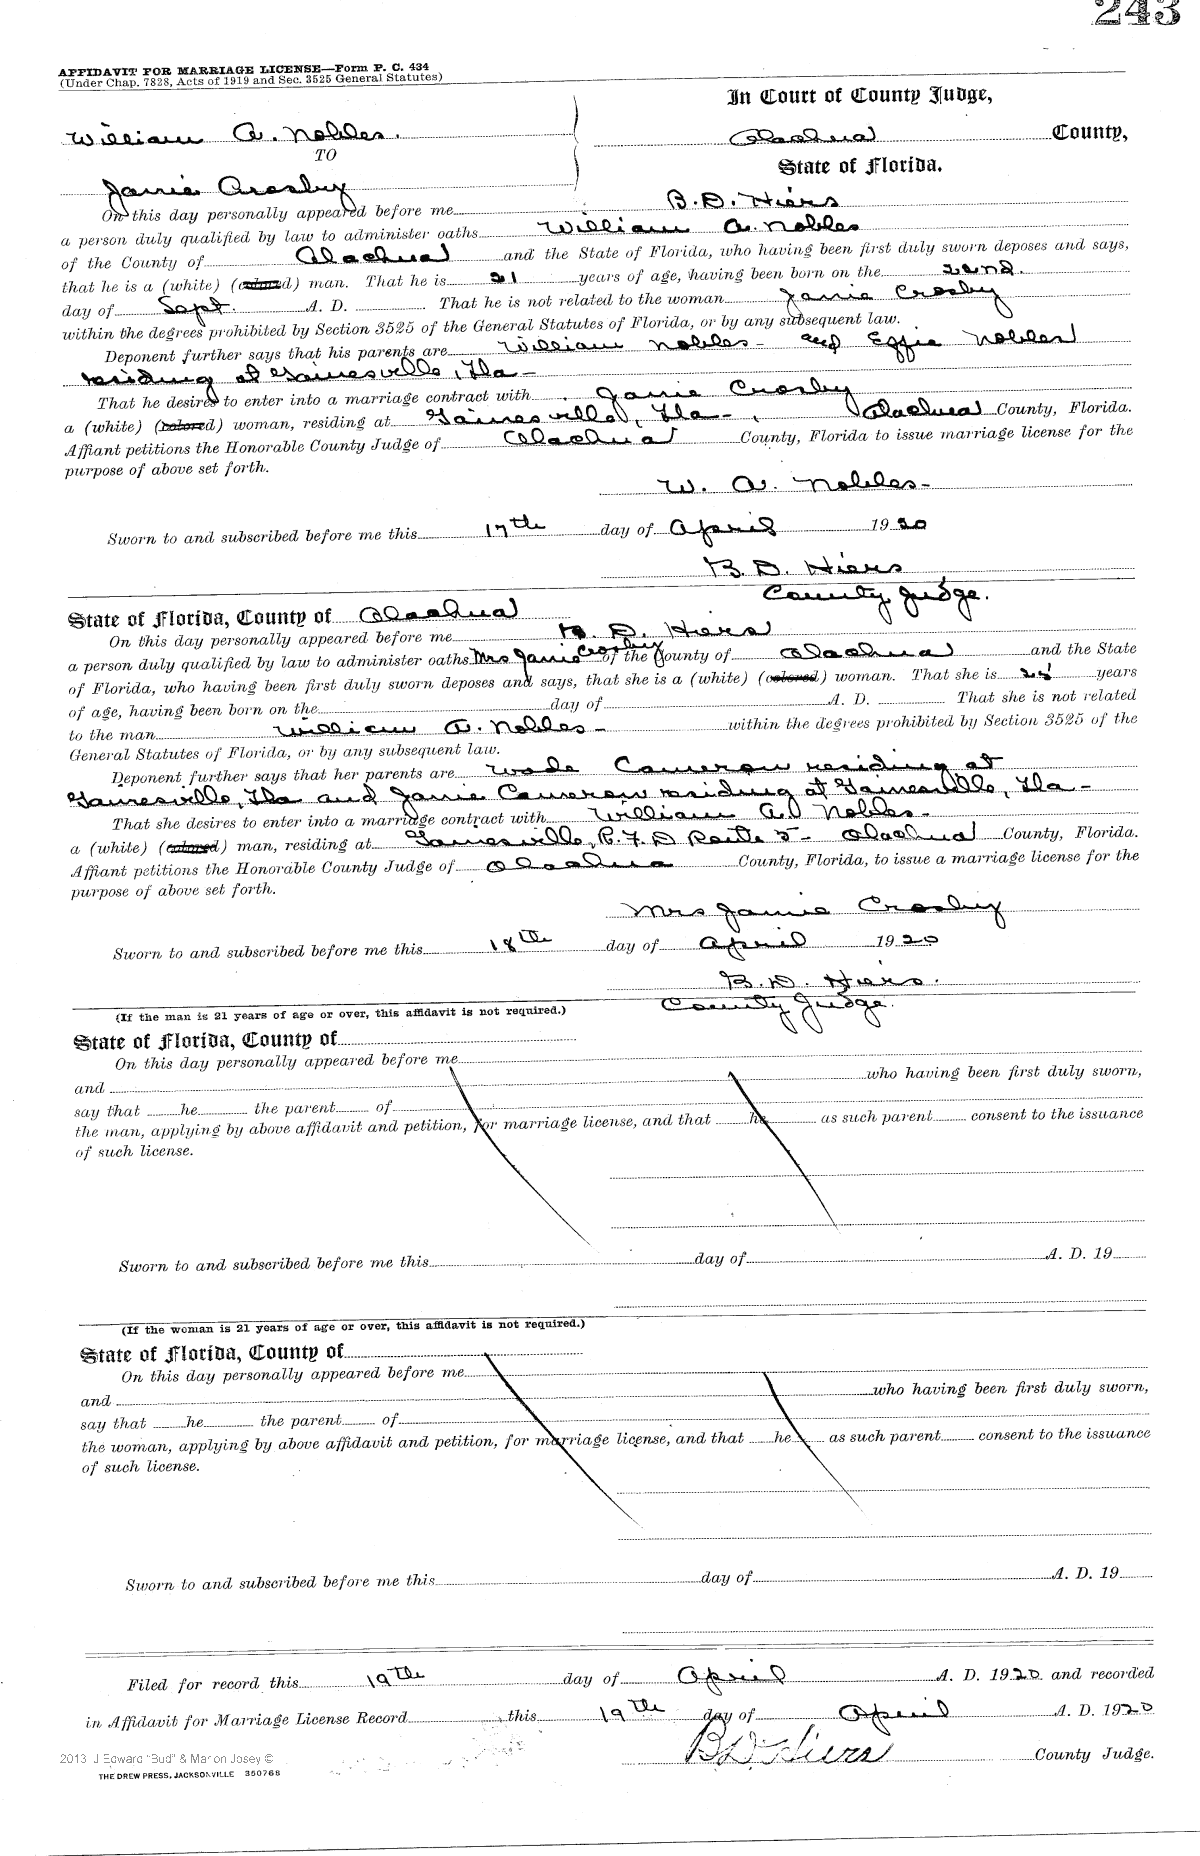 243
AFFIDAVIT FOR MARRIAGE LICENSE—Form P. C. 434
(Under Chap. 7828, Acts of 1919 and Sec. 3525 General Statutes)
In Court of County Judge,
William A. Nobles.
Alachua County,
TO
State of Florida.
Janie Crosby
On this day personally appeared before me B. D. Hiers
a person duly qualified by law to administer oaths William A. Nobles
of the County of Alachua and the State of Florida, who having been first duly sworn deposes and says,
that he is a (white) (colored) man. That he is 21 years of age, having been born on the 22nd.
day of Sept. A. D. That he is not related to the woman Janie Crosby
within the degrees prohibited by Section 3525 of the General Statutes of Florida, or by any subsequent law.
Deponent further says that his parents are William Nobles - and Effie Nobles
residing at Gainesville, Fla -
That he desires to enter into a marriage contract with Janie Crosby
a (white) (colored) woman, residing at Gainesville, Fla - , Alachua County, Florida.
Affiant petitions the Honorable County Judge of Alachua County, Florida to issue marriage license for the
purpose of above set forth.
W. A. Nobles -
Sworn to and subscribed before me this 17th day of April 1920
B. D. Hiers
County Judge.
State of Florida, County of Alachua
On this day personally appeared before me B. D. Hiers
a person duly qualified by law to administer oaths Mrs Janie Crosby of the County of Alachua and the State
of Florida, who having been first duly sworn deposes and says, that she is a (white) (colored) woman. That she is 25 years
of age, having been born on the day of A. D. That she is not related
to the man William A. Nobles - within the degrees prohibited by Section 3525 of the
General Statutes of Florida, or by any subsequent law.
Deponent further says that her parents are Wade Cameron residing at
Gainesville, Fla and Janie Cameron residing at Gainesville, Fla -
That she desires to enter into a marriage contract with William A. Nobles -
a (white) (colored) man, residing at Gainesville, R. F. D Route 5 - Alachua County, Florida.
Affiant petitions the Honorable County Judge of Alachua County, Florida, to issue a marriage license for the
purpose of above set forth.
Mrs Janie Crosby
Sworn to and subscribed before me this 18th day of April 1920
B. D. Hiers.
County Judge.
(If the man is 21 years of age or over, this affidavit is not required.)
State of Florida, County of
On this day personally appeared before me
and who having been first duly sworn,
say that he the parent of
the man, applying by above affidavit and petition, for marriage license, and that he as such parent consent to the issuance
of such license.
Sworn to and subscribed before me this day of A. D. 19
(If the woman is 21 years of age or over, this affidavit is not required.)
State of Florida, County of
On this day personally appeared before me
and who having been first duly sworn,
say that he the parent of
the woman, applying by above affidavit and petition, for marriage license, and that he as such parent consent to the issuance
of such license.
Sworn to and subscribed before me this day of A. D. 19
Filed for record this 19th day of April A. D. 1920 and recorded
in Affidavit for Marriage License Record this 19th day of April A. D. 1920
B D Hiers County Judge.
2013 J Edward "Bud" & Marion Josey ©
THE DREW PRESS, JACKSONVILLE 350768